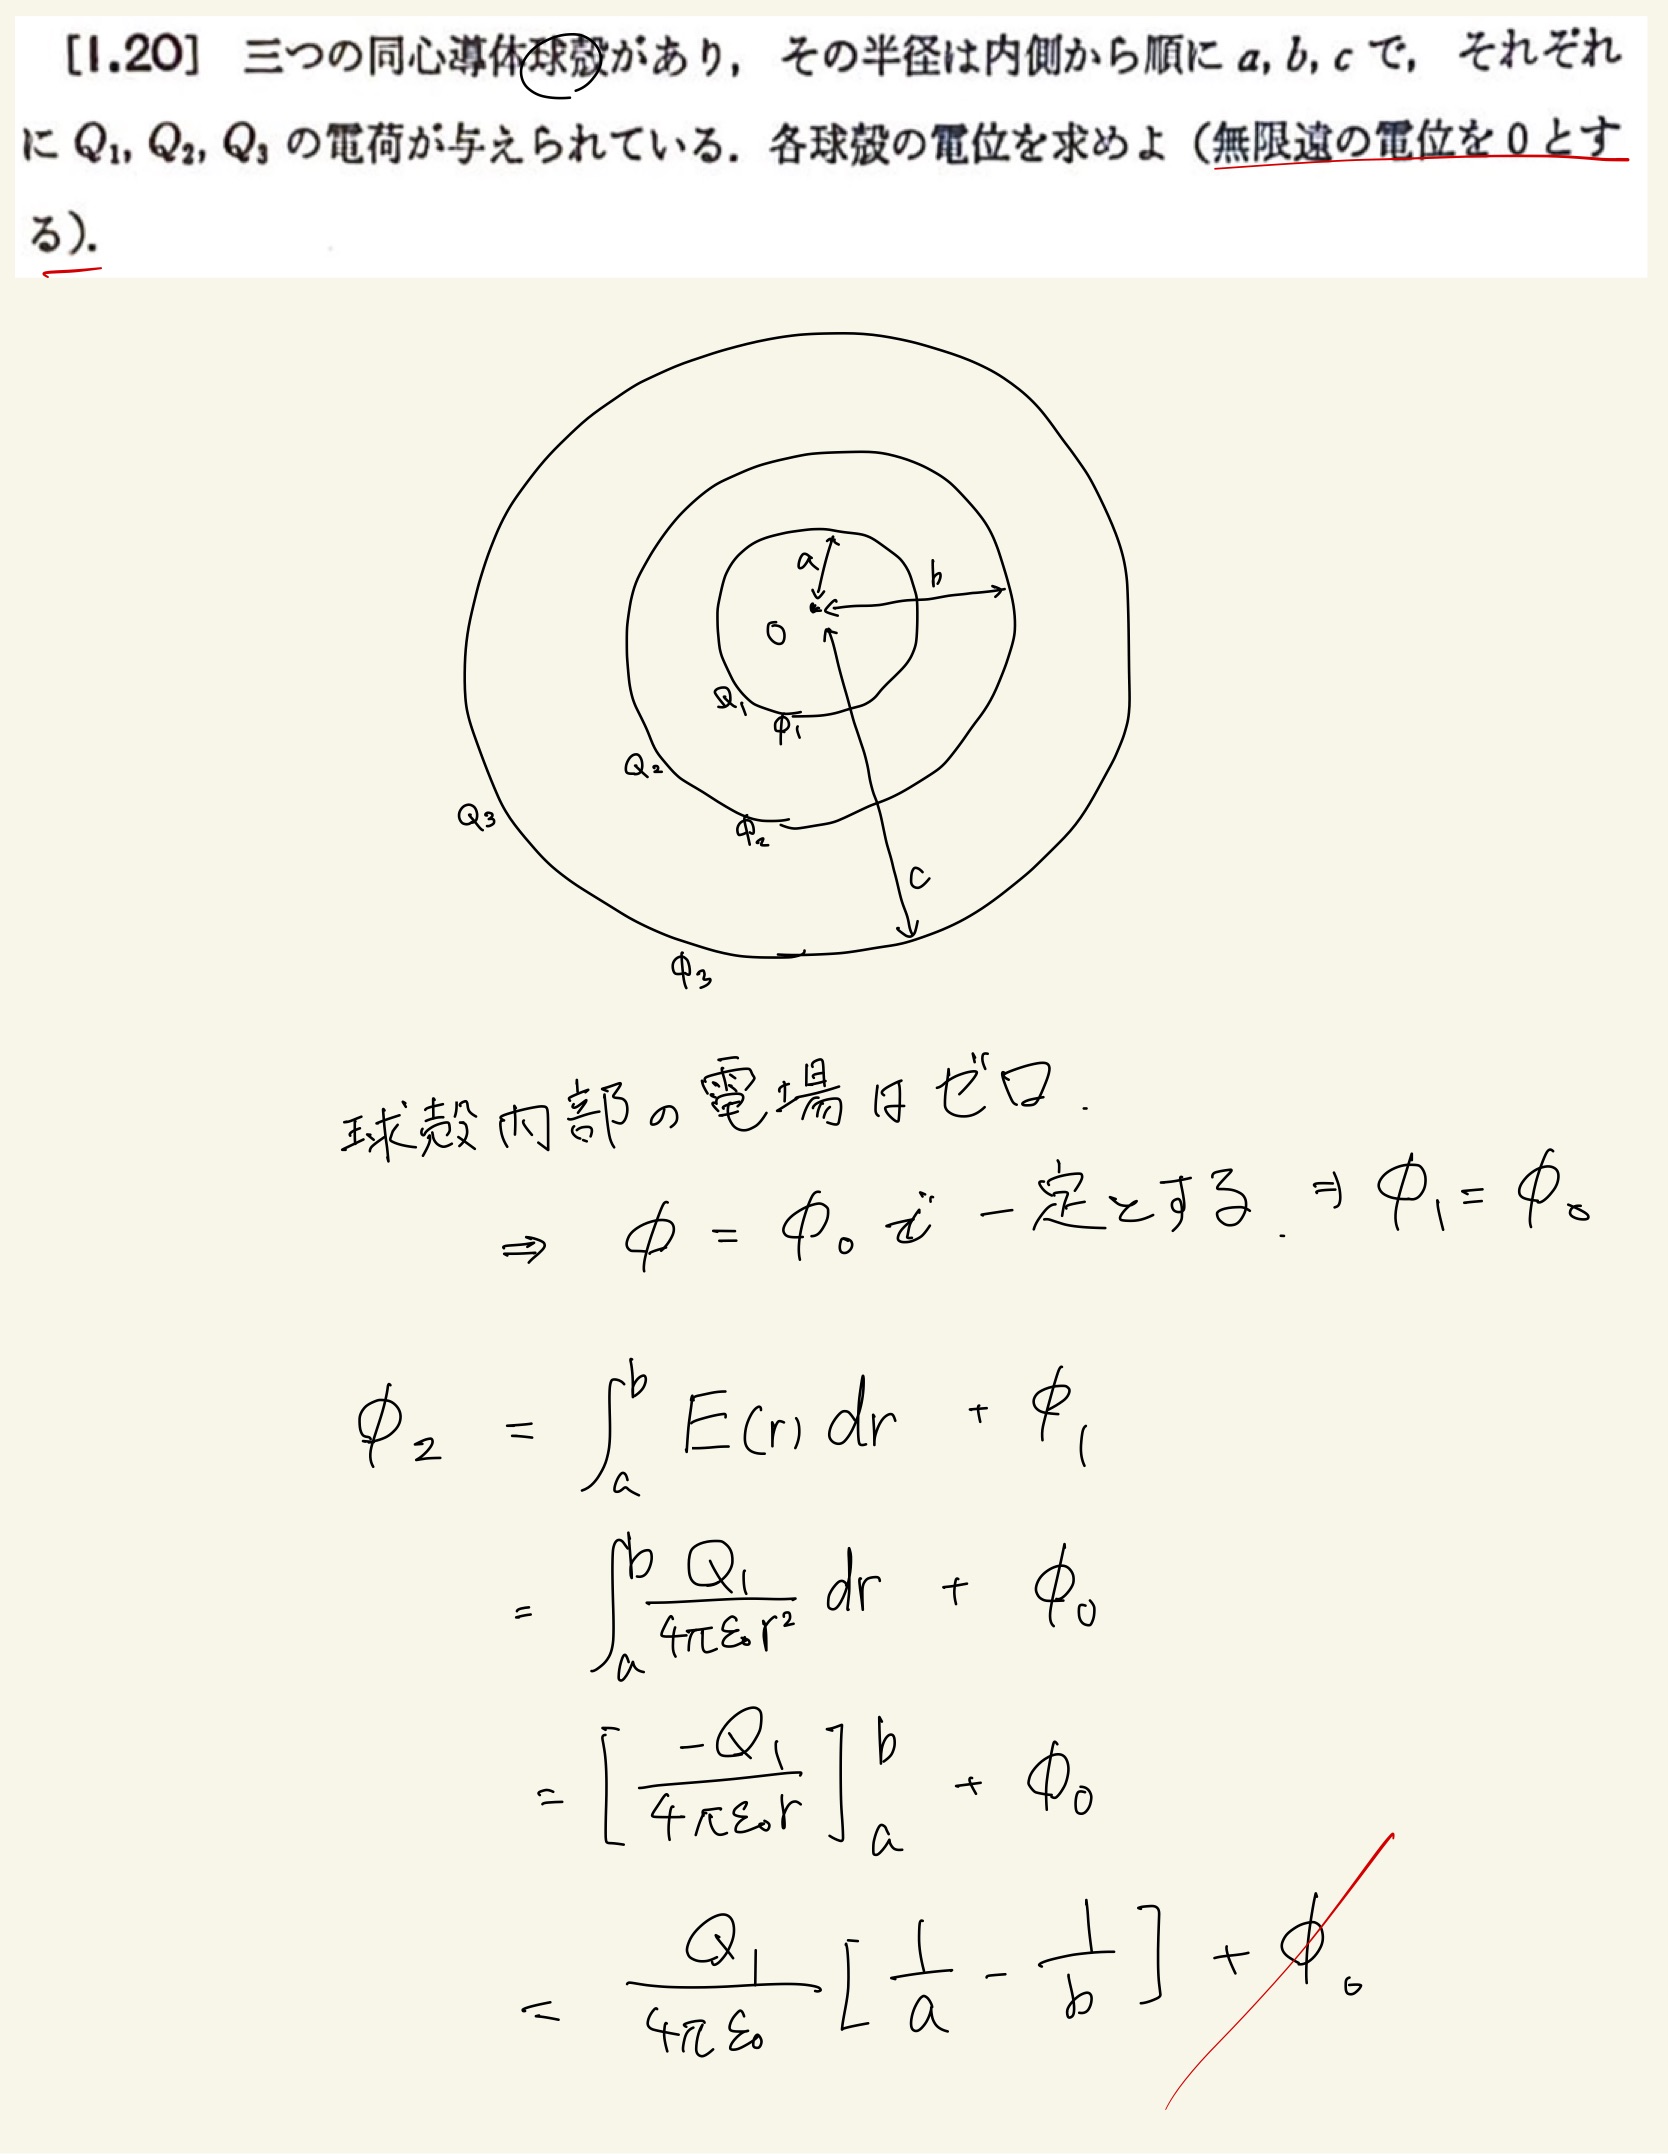 [1.20] 三つの同心導体球殻があり，その半径は内側から順に a, b, c で，それぞれ
に Q₁, Q₂, Q₃ の電荷が与えられている．各球殻の電位を求めよ（無限遠の電位を 0 とす
る）．
a
b
O
Q₁
φ₁
Q₂
φ₂
Q₃
c
φ₃
球殻内部の電場はゼロ.
⇒ φ = φ₀ で一定とする. ⇒ φ₁ = φ₀
φ₂ = ∫_a^b E(r) dr + φ₁
= ∫_a^b Q₁/(4πε₀r²) dr + φ₀
= [-Q₁/(4πε₀r)]_a^b + φ₀
= Q₁/(4πε₀) [1/a - 1/b] + φ₀